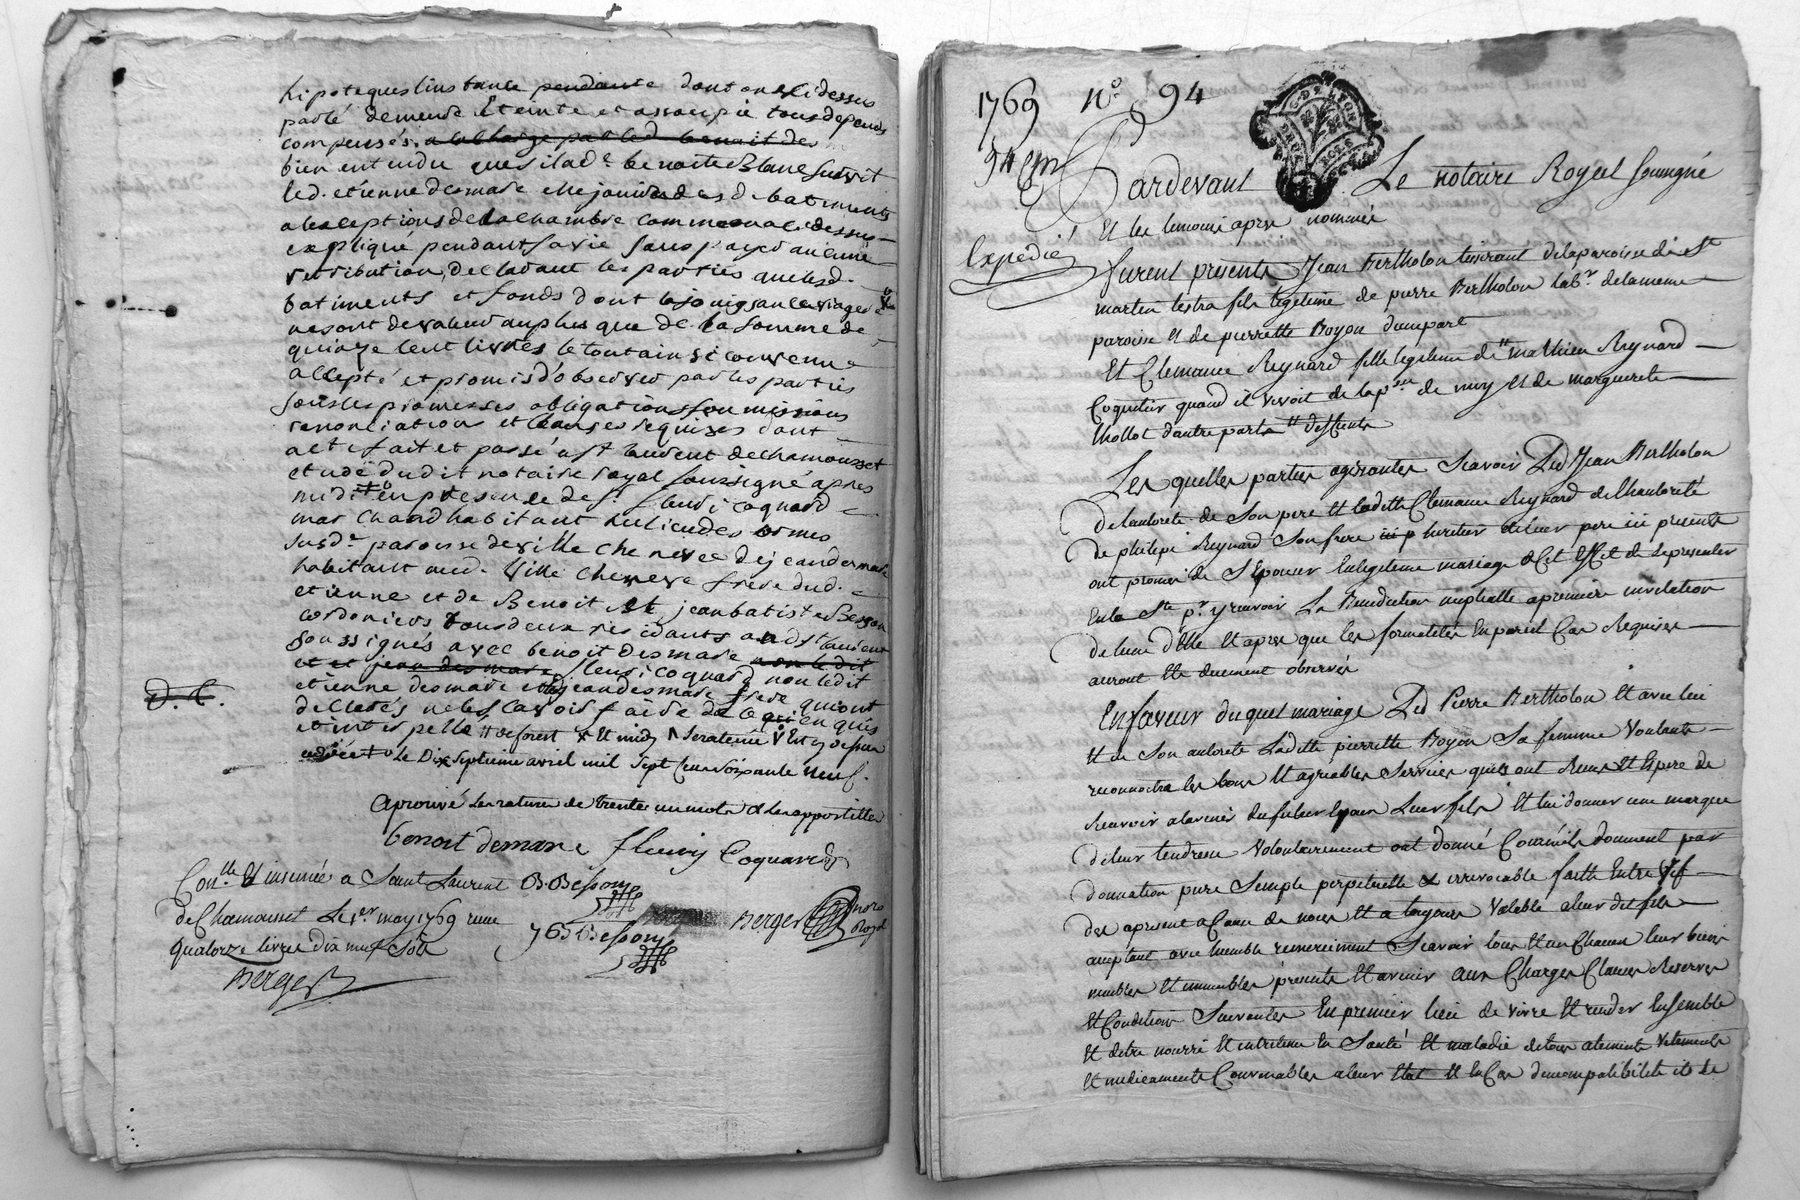 hipoteques linstance pendante dont on a ci dessus
parlé demeure Éteinte et assoupie tous depends
compensés a la charge par led benoit des
bien entendu que si lad.e benoite Blanc survit
led. etienne desmare elle jouira desd batiments
a lexceptions de la chambre comme on a ci dessus
expliqué pendant sa vie sans payer aucune
retribution, declarant les parties que lesd.
batiments et fonds dont la jouissance viagere
ne sont de valeur au plus que de la somme de
quinze cent livres le tout ainsi convenu
accepté et promis d'observer par les parties
sous les promesses obligations soumissions
renonciations et clauses requises dont
acte fait et passé a st laurent de chamousset
etude dudit notaire royal soussigné apres
midi en presence de s.r fleuri coquard
marchand habitant au lieu des ormes
susd.e paroisse de ville cheneve de jean desmare
habitant aud. Ville cheneve frere dud.
etienne et de Benoit et jean batiste Besson
cordoniers tous deux residants aud st laurent
soussignés avec benoit desmare non ledit
et et jean desmare fleuri coquard non ledit
etienne desmare et led jean desmare frere qui ont
D. C.
declarés ne le scavoir faire de ce enquis
et interpellé
Le Dix Septieme avril mil Sept Cent Soixante neuf.
Aprouvé La rature de trente un mots & les appostilles
benoit demare fleury Coquard
Con.lle Et insinué a Saint Laurent B. Besson
de Chamousset Le 1.er may 1769 reçu
J B Besson Berger no.re Royal
quatorze livres dix neuf Sols
Berger
1769 N.o 94
94
Pardevant Le notaire Royal Soussigné
Et les temoins apres nommés
Expedié
furent presents Jean Bertholon tisserant de la paroisse de S.t
martin lestra fils legitime de pierre Bertholon lab.r de la meme
paroisse et de pierrette Boyon d'une part
Et Clemance Reynard fille legitime de mathieu Reynard
Coquetier quand il vivoit de la p.sse de nuy et de marguerite
thollot d'autre part
Les quelles parties agissantes Scavoir Led Jean Bertholon
de l'autorité de Son pere et laditte Clemance Reynard de l'hautorité
de philipe Reynard Son frere heritier de leur pere ici presents
ont promis de S'Epouser En legitime mariage a Cet Effet de Se presenter
En la S.te p.r y recevoir La Benediction nuptialle a premiere invitation
de l'une d'Elle Et apres que les formalités En pareil Cas Requises
auront Eté duement observés
En faveur du quel mariage Led Pierre Bertholon Et avec lui
Et de Son autorité Laditte pierrette Boyon Sa femme Voulants
reconnoitre les bons Et agréables Services quils ont Reçus Et Espere de
Recevoir a lavenir du futur Epoux Leur fils Et lui donner une marque
de leur tendresse Volontairement ont donné Comme ils donnent par
donnation pure Simple perpetuelle & irrevocable faitte Entre Vif
des apresent a Cause de noces Et a toujours Valable a leur dit fils
aceptant avec humble remerciment Scavoir tous Et un Chacun leur biens
meubles Et immeubles présents Et avenir aux Charges Clauses Reserves
Et Conditions Suivantes En premier lieu de vivre Et rester Ensemble
Et detre nourri Et entretenu En Santé Et maladie de tous aliments Vetements
Et medicaments Convenables a leur Etat Et En Cas d'incompatibilité ils Se